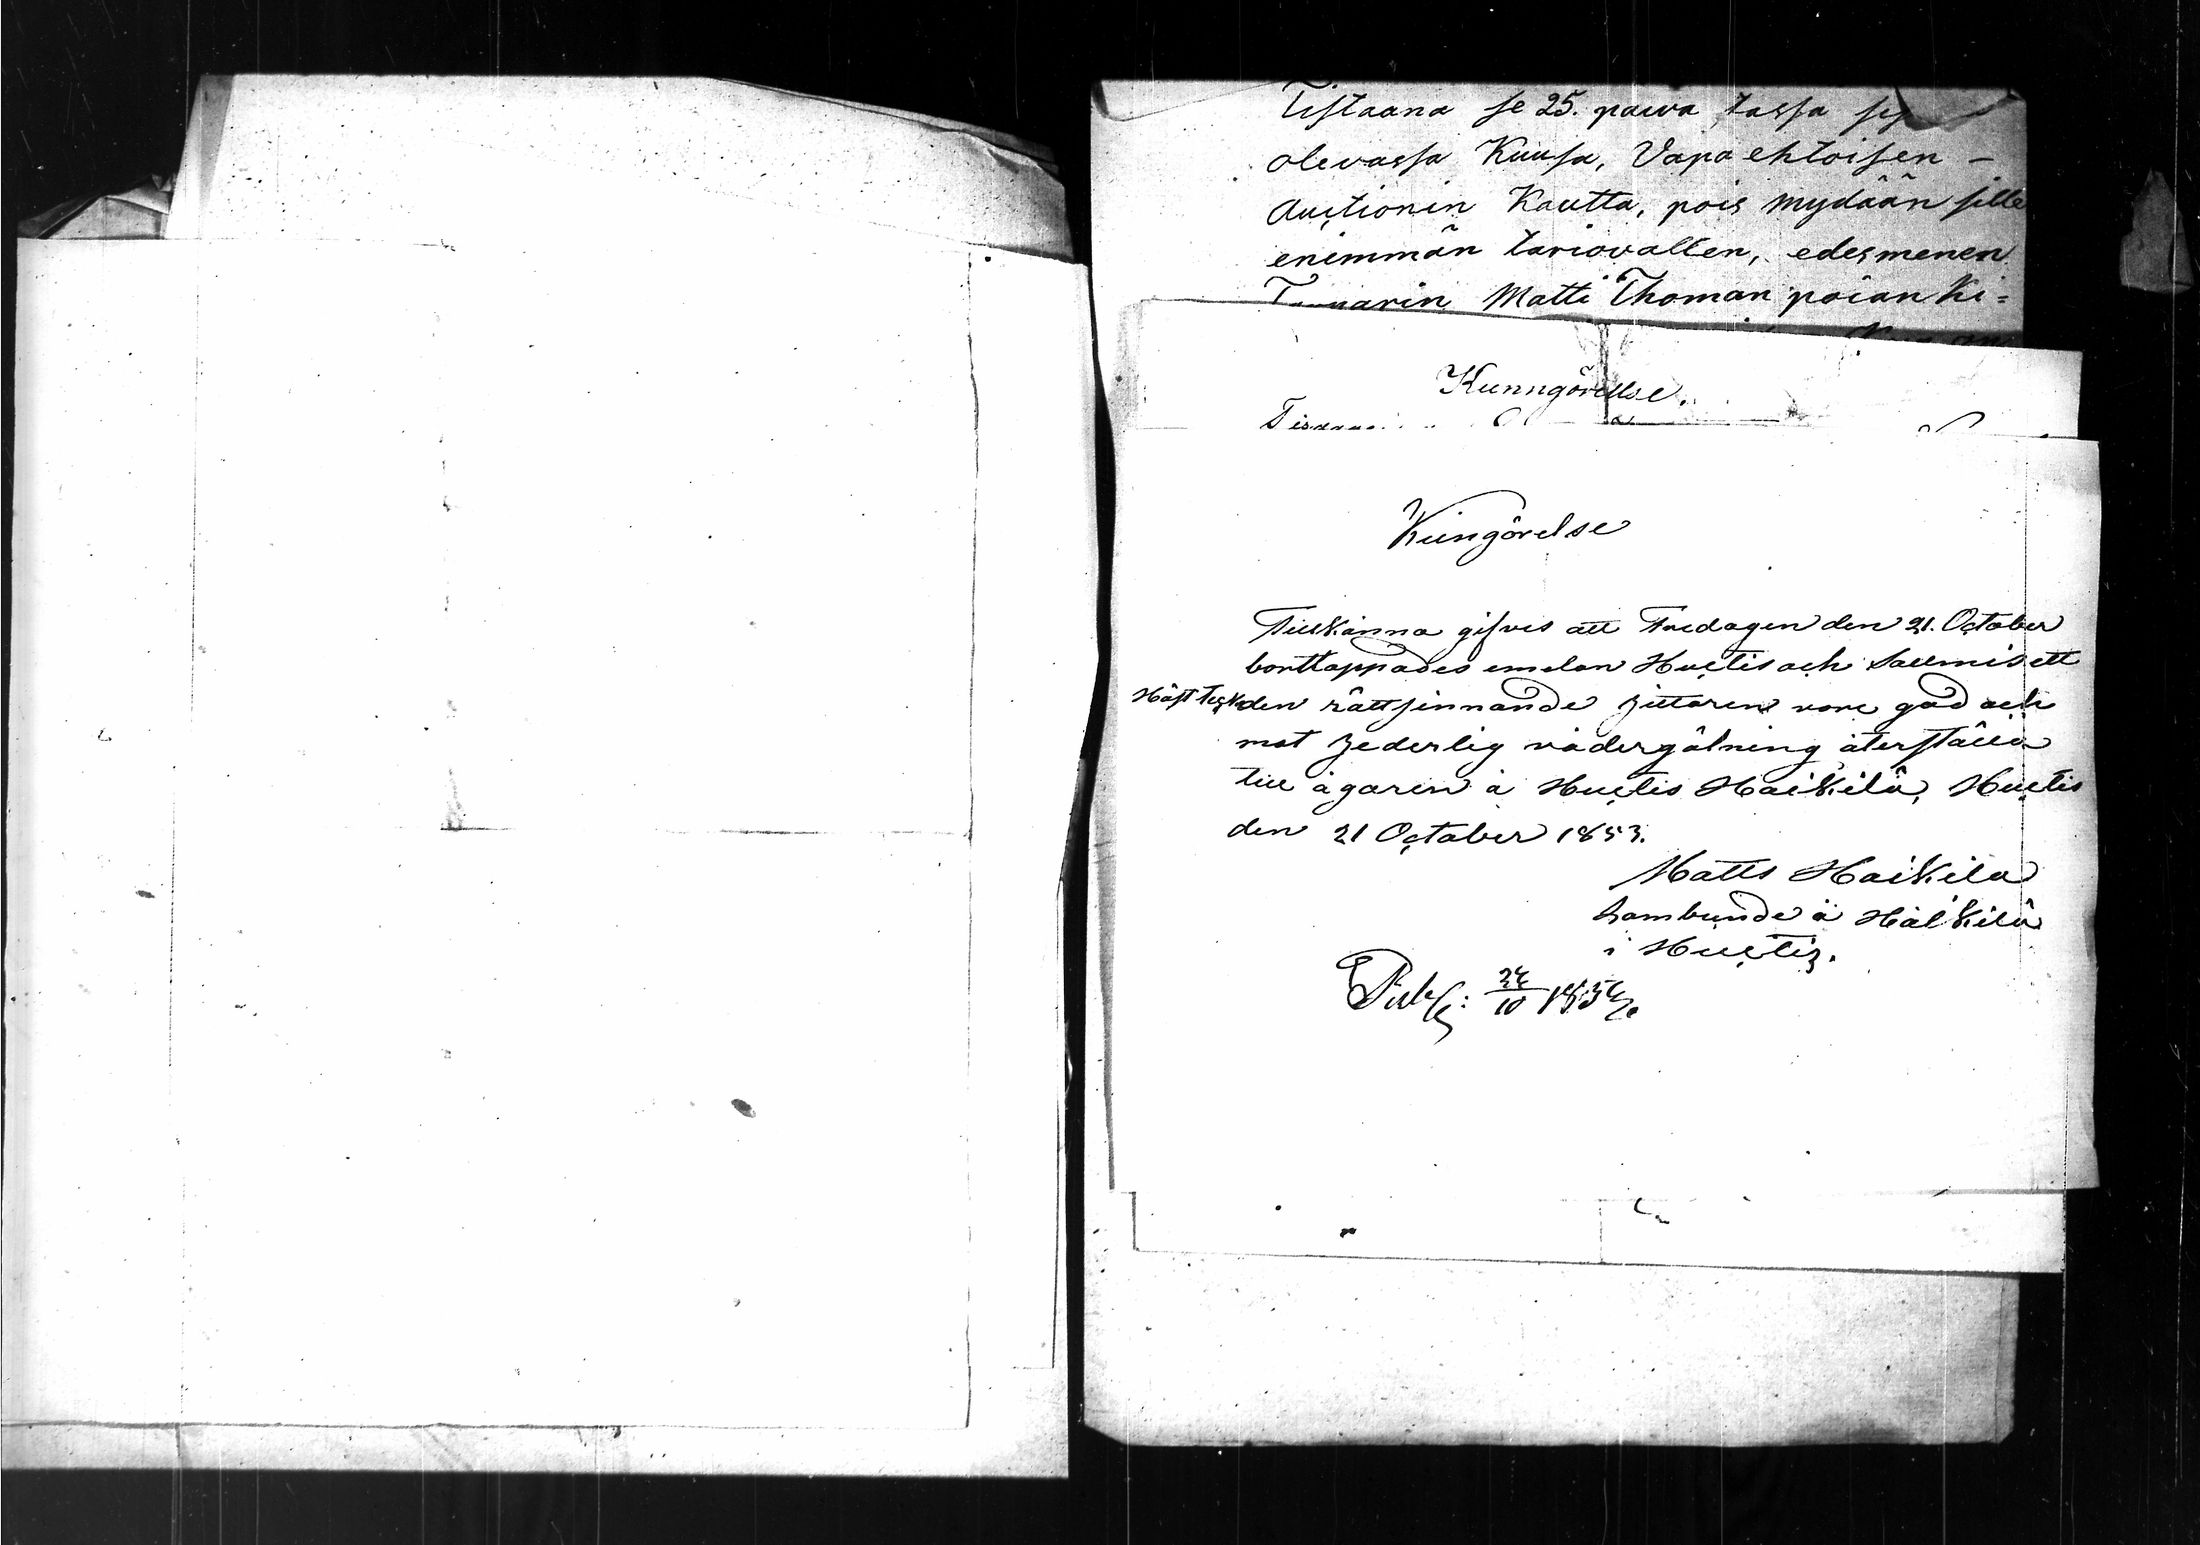 Tistaana se 25. paiva tassa
olevassa Kuusa, Vapa ehtoisen –
Auctionin Kautta, pois mydään sille
enimmän tariovallen, edesmenen
Matti Thoman poian Ki=
Kunngörellse.
Kungörelse
Tillkänna gifves att Fredagen den 21. October
borttappades emelan Huctis och Sallmis ett
Häst teck den rättfinnande hittaren vore god och
mot hederlig vädergälning återställa
till ägaren å Huctis Haikilä, Huctis
den 21 October 1853.
Matts Haikila
bonde å Haikilä
i Huctis.
Publ: 24/10 1853